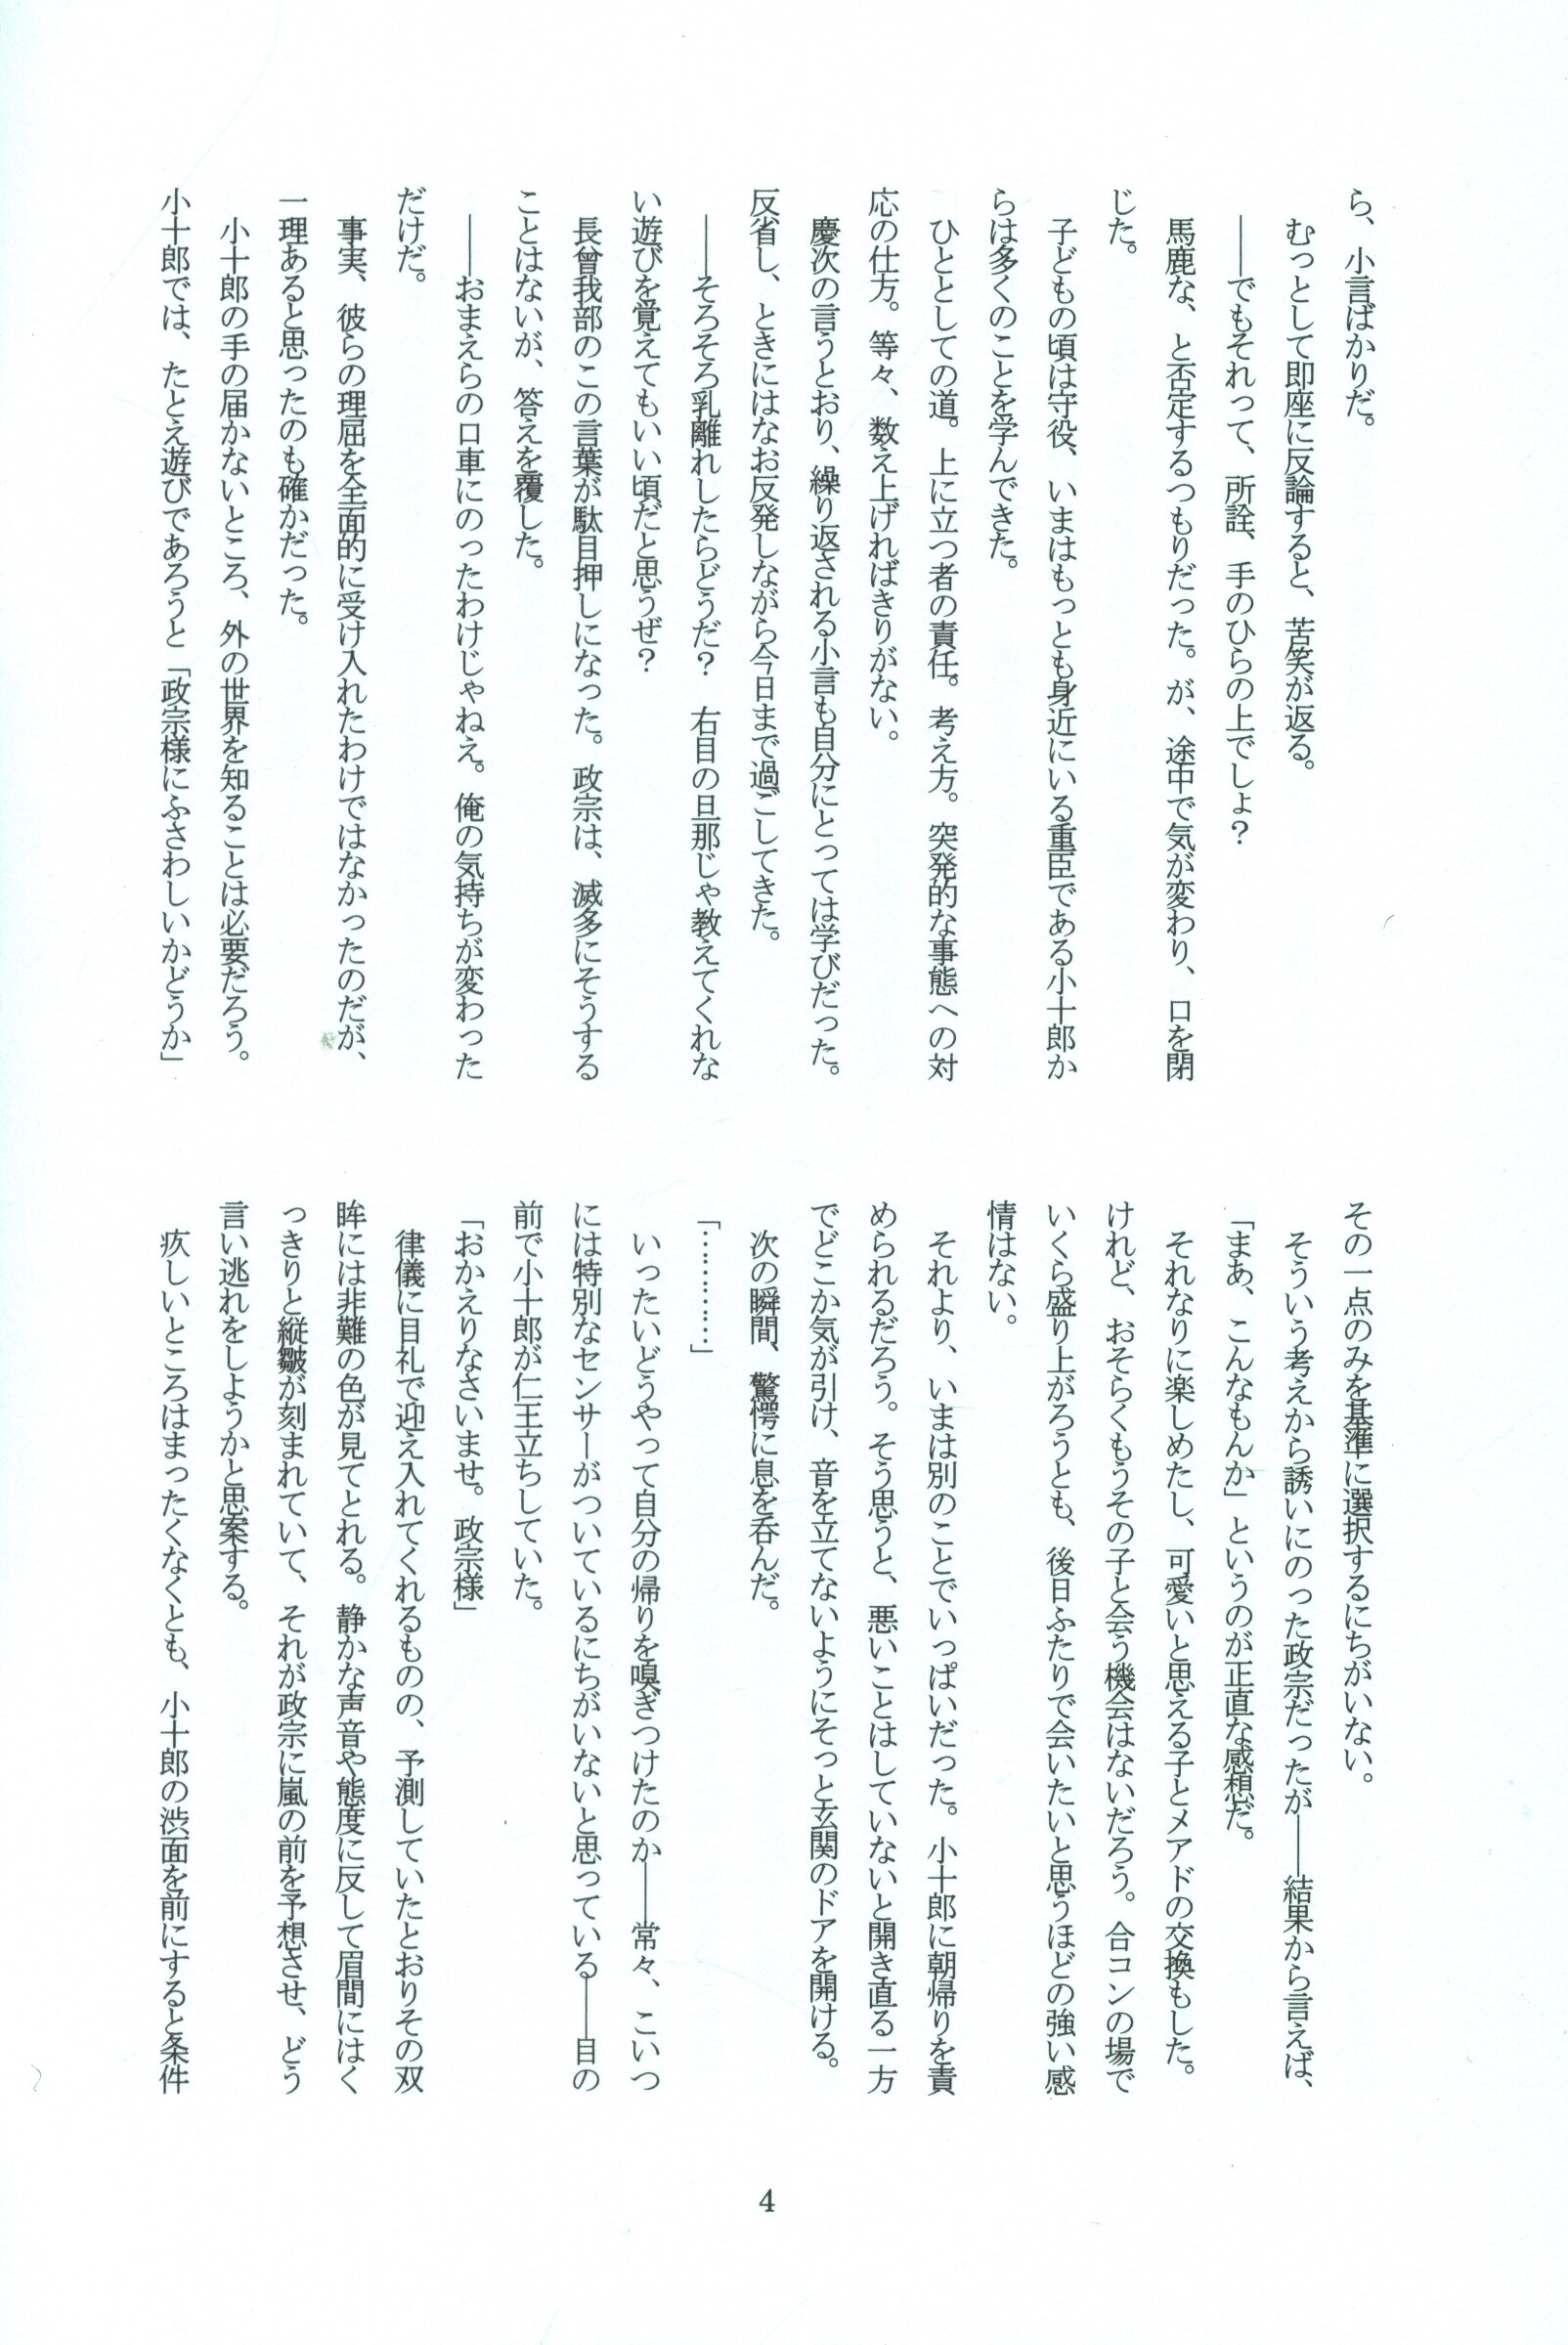 ら、小言ばかりだ。
　むっとして即座に反論すると、苦笑が返る。
　――でもそれって、所詮、手のひらの上でしょ？
　馬鹿な、と否定するつもりだった。が、途中で気が変わり、口を閉
じた。
　子どもの頃は守役、いまはもっとも身近にいる重臣である小十郎か
らは多くのことを学んできた。
　ひととしての道。上に立つ者の責任。考え方。突発的な事態への対
応の仕方。等々、数え上げればきりがない。
　慶次の言うとおり、繰り返される小言も自分にとっては学びだった。
反省し、ときにはなお反発しながら今日まで過ごしてきた。
　――そろそろ乳離れしたらどうだ？　右目の旦那じゃ教えてくれな
い遊びを覚えてもいい頃だと思うぜ？
　長曾我部のこの言葉が駄目押しになった。政宗は、滅多にそうする
ことはないが、答えを覆した。
　――おまえらの口車にのったわけじゃねえ。俺の気持ちが変わった
だけだ。
　事実、彼らの理屈を全面的に受け入れたわけではなかったのだが、
一理あると思ったのも確かだった。
　小十郎の手の届かないところ、外の世界を知ることは必要だろう。
小十郎では、たとえ遊びであろうと「政宗様にふさわしいかどうか」
その一点のみを基準に選択するにちがいない。
　そういう考えから誘いにのった政宗だったが――結果から言えば、
「まあ、こんなもんか」というのが正直な感想だ。
　それなりに楽しめたし、可愛いと思える子とメアドの交換もした。
けれど、おそらくもうその子と会う機会はないだろう。合コンの場で
いくら盛り上がろうとも、後日ふたりで会いたいと思うほどの強い感
情はない。
　それより、いまは別のことでいっぱいだった。小十郎に朝帰りを責
められるだろう。そう思うと、悪いことはしていないと開き直る一方
でどこか気が引け、音を立てないようにそっと玄関のドアを開ける。
　次の瞬間、驚愕に息を呑んだ。
「…………」
　いったいどうやって自分の帰りを嗅ぎつけたのか――常々、こいつ
には特別なセンサーがついているにちがいないと思っている――目の
前で小十郎が仁王立ちしていた。
「おかえりなさいませ。政宗様」
　律儀に目礼で迎え入れてくれるものの、予測していたとおりその双
眸には非難の色が見てとれる。静かな声音や態度に反して眉間にはく
っきりと縦皺が刻まれていて、それが政宗に嵐の前を予想させ、どう
言い逃れをしようかと思案する。
　疚しいところはまったくなくとも、小十郎の渋面を前にすると条件
4